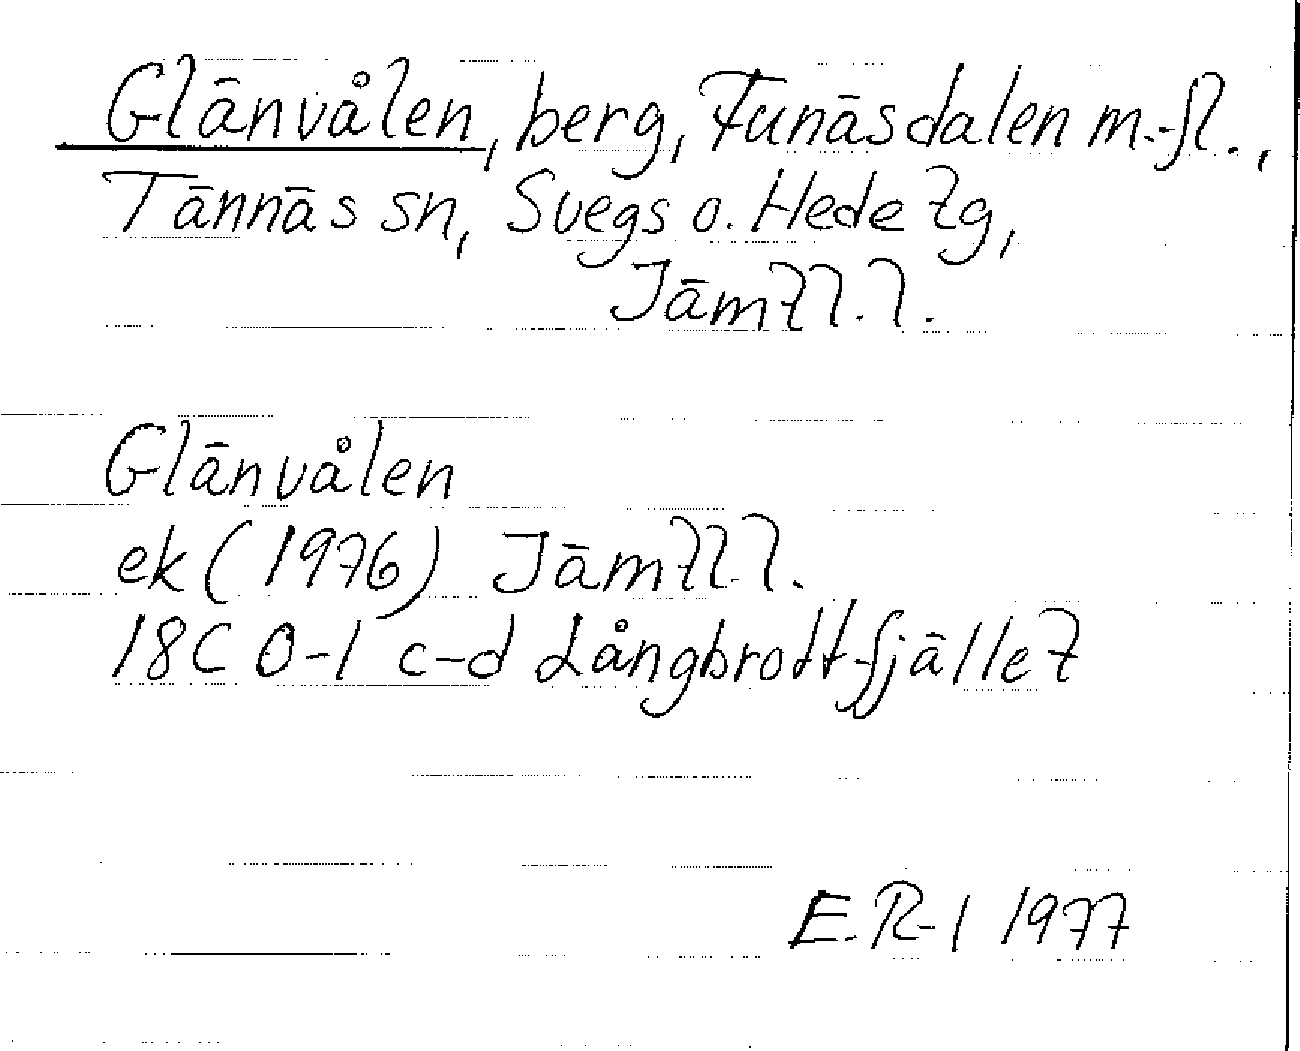 Glänvålen, berg, Funäsdalen m.fl.,
Tännäs sn, Svegs o. Hede tg,
Jämtl. l.
Glänvålen
ek (1976) Jämtl l.
18C 0-1 c-d Långbrottfjället
E. R-l 1977